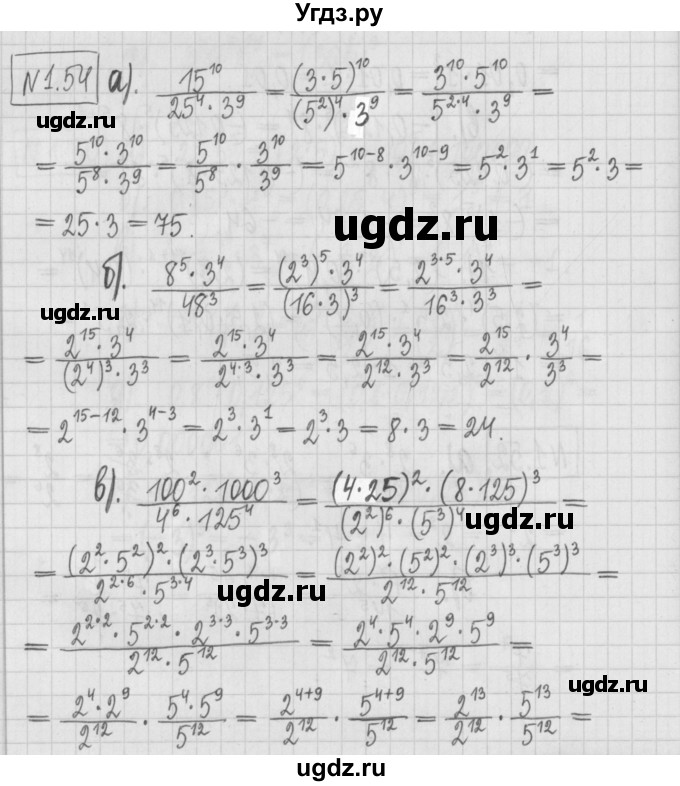 Угдз.ру
№1.54 а). 15^10 / (25^4 · 3^9) = (3·5)^10 / ((5^2)^4 · 3^9) = (3^10 · 5^10) / (5^(2·4) · 3^9) =
ugdz.ru
= (5^10 · 3^10) / (5^8 · 3^9) = 5^10 / 5^8 · 3^10 / 3^9 = 5^(10-8) · 3^(10-9) = 5^2 · 3^1 = 5^2 · 3 =
= 25 · 3 = 75.
ugdz.ru
б). (8^5 · 3^4) / 48^3 = ((2^3)^5 · 3^4) / (16·3)^3 = (2^(3·5) · 3^4) / (16^3 · 3^3) =
ugdz.ru
= (2^15 · 3^4) / ((2^4)^3 · 3^3) = (2^15 · 3^4) / (2^(4·3) · 3^3) = (2^15 · 3^4) / (2^12 · 3^3) = 2^15 / 2^12 · 3^4 / 3^3 =
= 2^(15-12) · 3^(4-3) = 2^3 · 3^1 = 2^3 · 3 = 8 · 3 = 24.
в). (100^2 · 1000^3) / (4^6 · 125^4) = ((4·25)^2 · (8·125)^3) / ((2^2)^6 · (5^3)^4) =
ugdz.ru
= ((2^2 · 5^2)^2 · (2^3 · 5^3)^3) / (2^(2·6) · 5^(3·4)) = ((2^2)^2 · (5^2)^2 · (2^3)^3 · (5^3)^3) / (2^12 · 5^12) =
ugdz.ru
= (2^(2·2) · 5^(2·2) · 2^(3·3) · 5^(3·3)) / (2^12 · 5^12) = (2^4 · 5^4 · 2^9 · 5^9) / (2^12 · 5^12) =
ugdz.ru
= (2^4 · 2^9) / 2^12 · (5^4 · 5^9) / 5^12 = 2^(4+9) / 2^12 · 5^(4+9) / 5^12 = 2^13 / 2^12 · 5^13 / 5^12 =
ugdz.ru